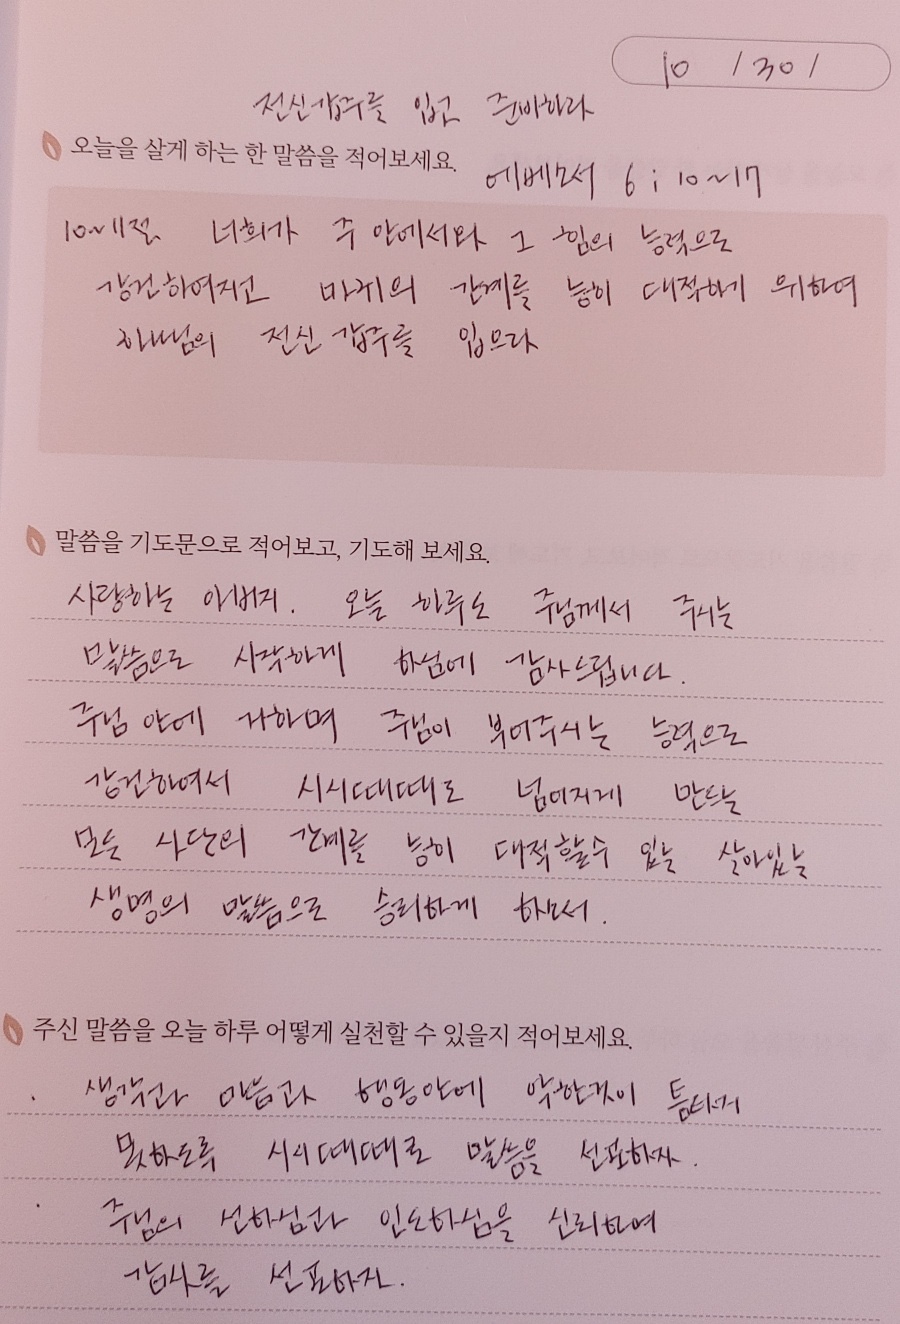 10 / 30 /
전신갑주를 입고 준비하라
오늘을 살게 하는 한 말씀을 적어보세요.
에베소서 6 : 10 ~ 17
10~11절 너희가 주 안에서와 그 힘의 능력으로
강건하여지고 마귀의 간계를 능히 대적하기 위하여
하나님의 전신 갑주를 입으라
말씀을 기도문으로 적어보고, 기도해 보세요.
사랑하는 아버지. 오늘 하루도 주님께서 주시는
말씀으로 시작하게 하심에 감사드립니다.
주님 안에 거하며 주님이 부어주시는 능력으로
강건하여서 시시때때로 넘어지게 만드는
모든 사단의 간계를 능히 대적할수 있는 살아있는
생명의 말씀으로 승리하게 하소서.
주신 말씀을 오늘 하루 어떻게 실천할 수 있을지 적어보세요.
· 생각과 마음과 행동안에 악한것이 틈타지
못하도록 시시때때로 말씀을 선포하자.
· 주님의 선하심과 인도하심을 신뢰하여
감사를 선포하자.